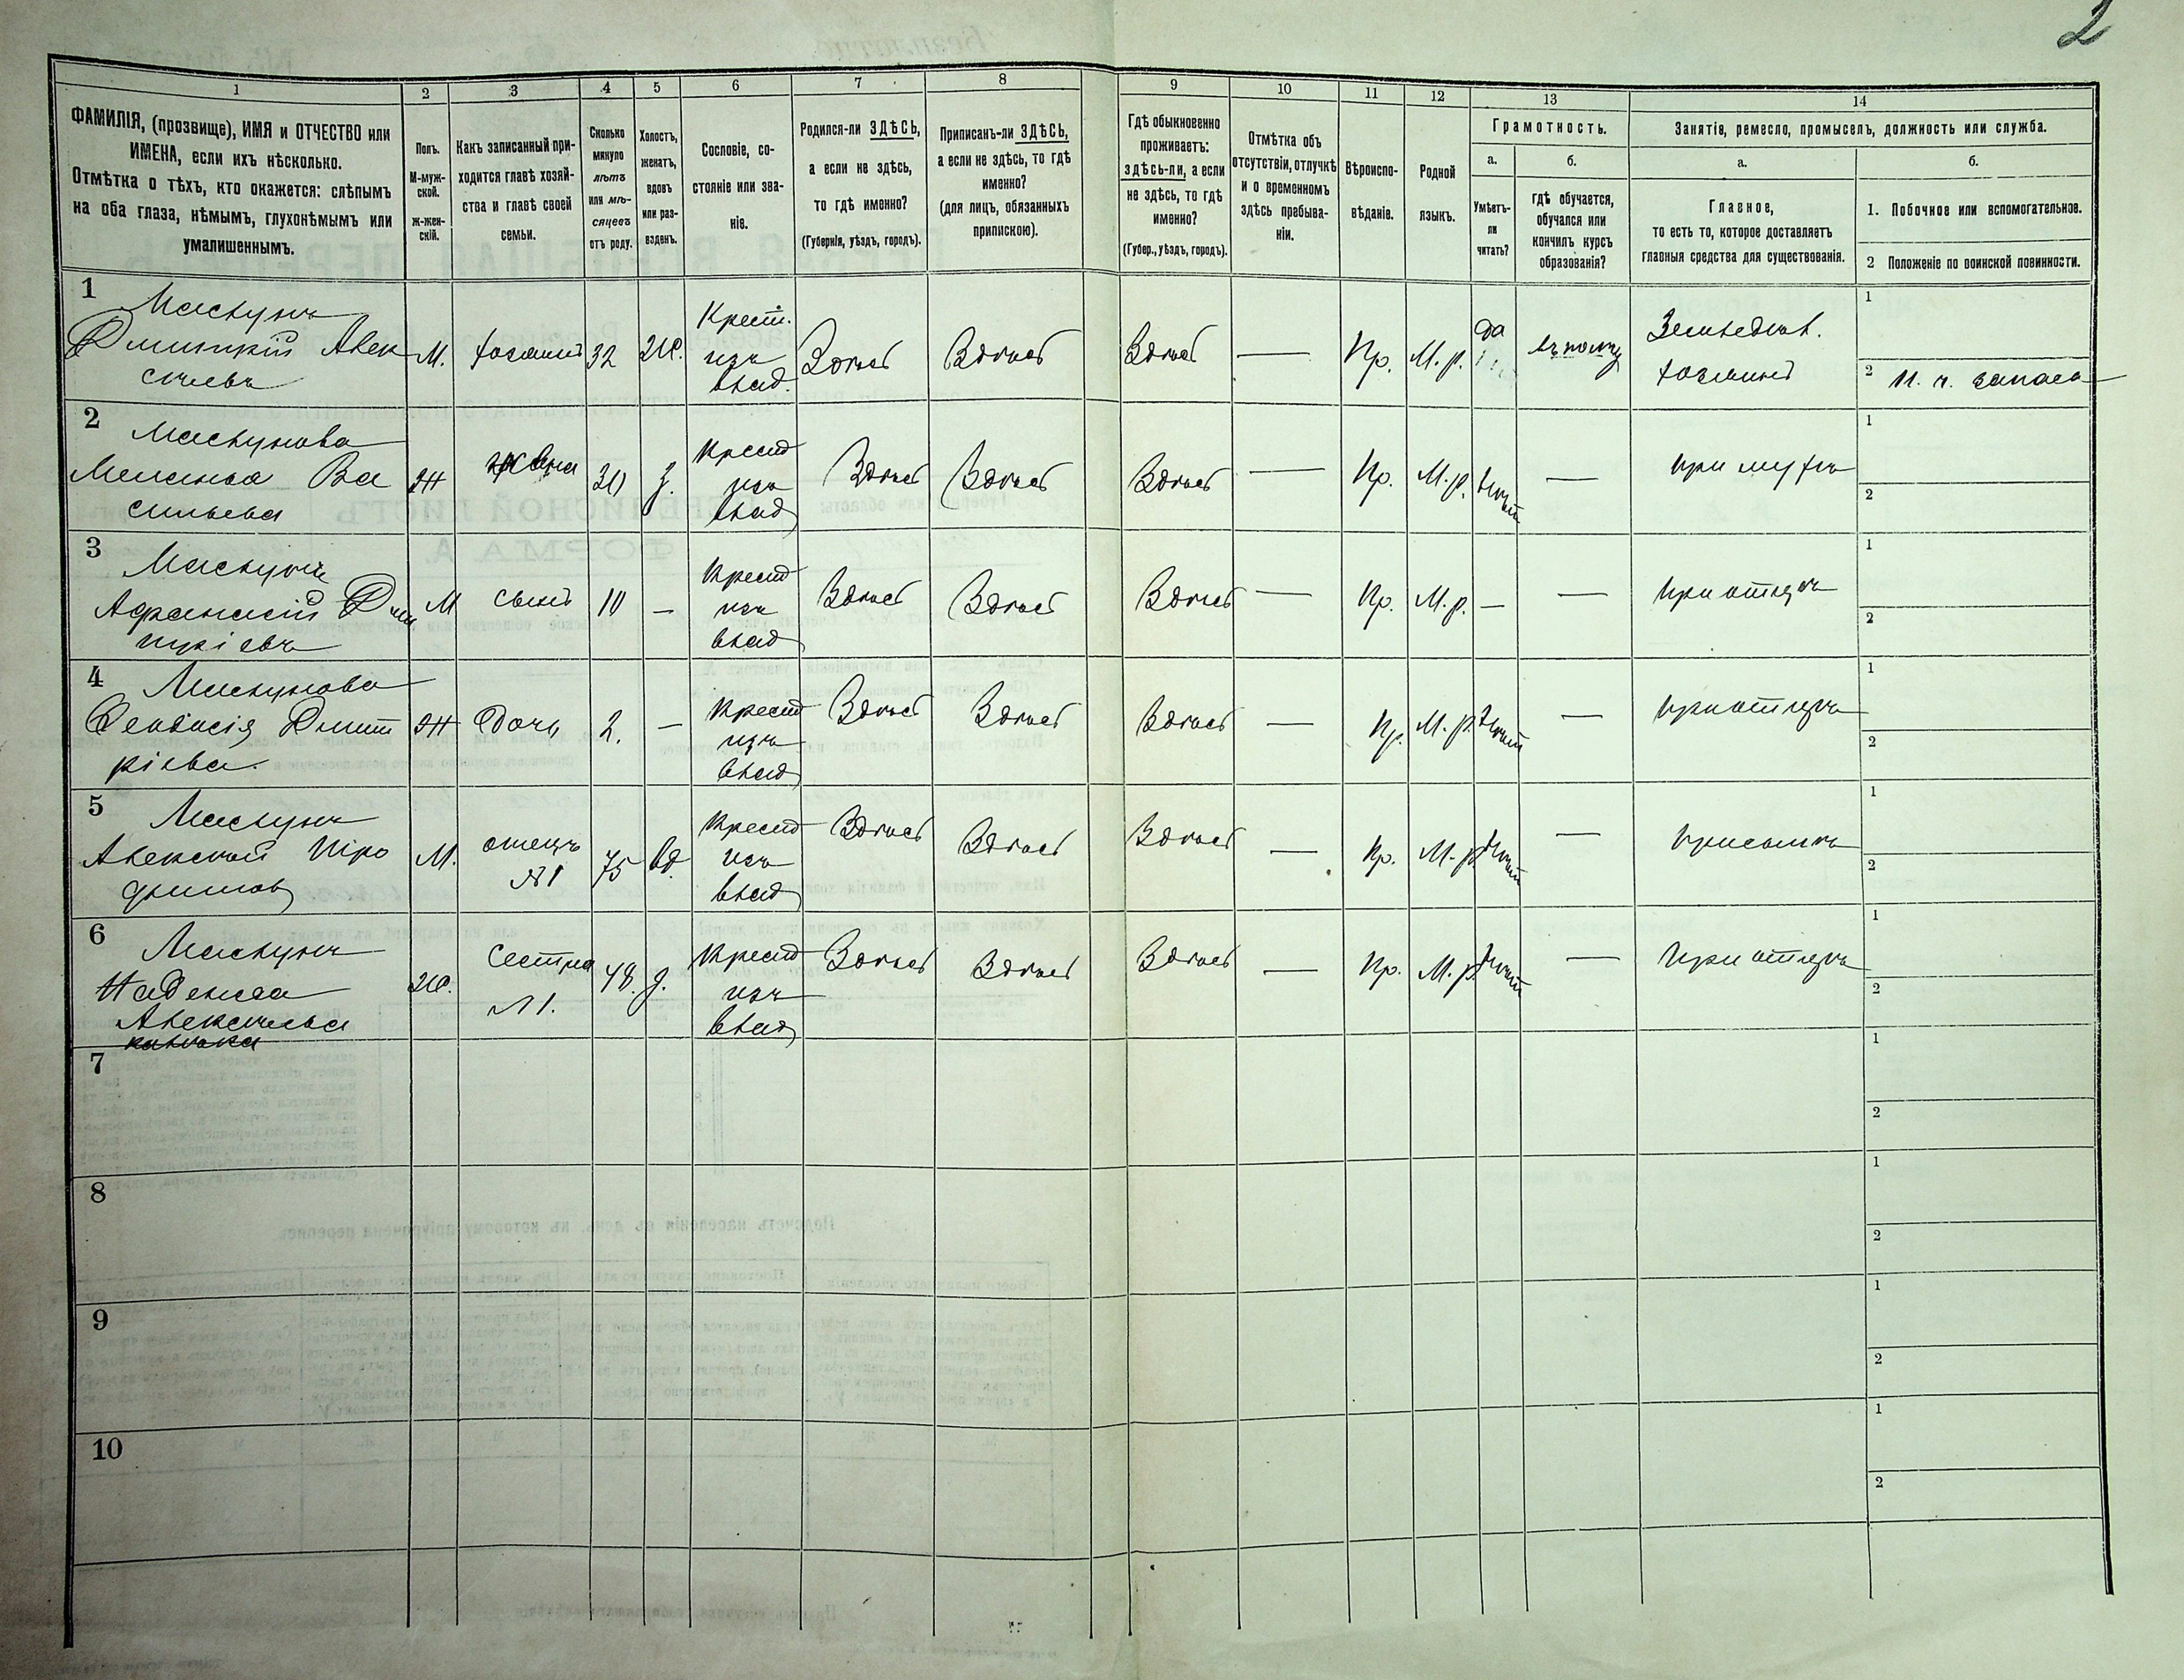 2
1
2
3
4
5
6
7
8
9
10
11
12
13
14
ФАМИЛІЯ, (прозвище), ИМЯ и ОТЧЕСТВО или
ИМЕНА, если ихъ нѣсколько.
Отмѣтка о тѣхъ, кто окажется: слѣпымъ
на оба глаза, нѣмымъ, глухонѣмымъ или
умалишеннымъ.
Полъ.
М-муж-
ской.
ж-жен-
скій.
Какъ записанный при-
ходится главѣ хозяй-
ства и главѣ своей
семьи.
Сколько
минуло
лѣтъ
или мѣ-
сяцевъ
отъ роду.
Холостъ,
женатъ,
вдовъ
или раз-
веденъ.
Сословіе, со-
стояніе или зва-
ніе.
Родился-ли ЗДѢСЬ,
а если не здѣсь,
то гдѣ именно?
(Губернія, уѣздъ, городъ).
Приписанъ-ли ЗДѢСЬ,
а если не здѣсь, то гдѣ
именно?
(для лицъ, обязанныхъ
припискою).
Гдѣ обыкновенно
проживаетъ:
здѣсь-ли, а если
не здѣсь, то гдѣ
именно?
(Губер., уѣздъ, городъ).
Отмѣтка объ
отсутствіи, отлучкѣ
и о временномъ
здѣсь пребыва-
ніи.
Вѣроиспо-
вѣданіе.
Родной
языкъ.
Грамотность.
а.
Умѣетъ-
ли
читать?
б.
гдѣ обучается,
обучался или
кончилъ курсъ
образованія?
Занятія, ремесло, промыселъ, должность или служба.
а.
Главное,
то есть то, которое доставляетъ
главныя средства для существованія.
б.
1. Побочное или вспомогательное.
2 Положеніе по воинской повинности.
1
Дмитрій Алек
сѣевъ
М. хозяинъ 32 Ж.
Крест.
изъ
влад.
Здѣсь Здѣсь Здѣсь — Пр. М. р. да
хозяинъ
1
2
2
Ва
сильева
Ж жена 30 з.
Крест
изъ
влад
Здѣсь Здѣсь Здѣсь — Пр. М. р. нѣтъ — при мужѣ
1
2
3
Афанасій Дми
тріевъ
М сынъ 10 —
Крест
изъ
влад
Здѣсь Здѣсь Здѣсь — Пр. М. р. — — при отцѣ
1
2
4
Феодосія Дмит
ріева
Ж Дочь 2. —
Крест
изъ
влад
Здѣсь Здѣсь Здѣсь — Пр. М. р. нѣтъ — при отцѣ
1
2
5
Алексѣй Тро
фимов
М. отецъ
№ 1
75 вд.
Крест
изъ
влад
Здѣсь Здѣсь Здѣсь — Пр. М. р. нѣтъ — при сынѣ
1
2
6
Алексѣева
Ж. Сестра
№ 1.
48. д.
Крест
изъ
влад
Здѣсь Здѣсь Здѣсь — Пр. М. р. нѣтъ — при отцѣ
1
2
7
1
2
8
1
2
9
1
2
10
1
2